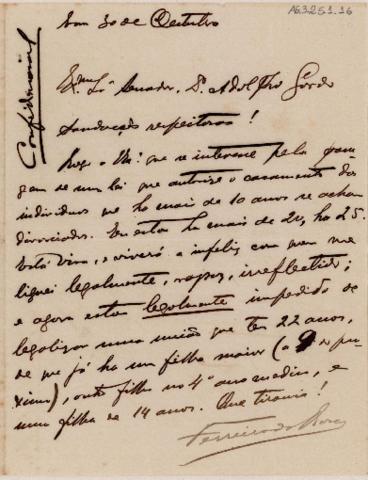 AG.3.2.5.1.16
Confidencial
em 30 de Outubro
Exmo Sr. Senador, Dr. Adolpho Gordo
Saudações respeitosas!
Rogo a V. que se interesse pela
de uma lei que autorise o casamento dos
individuos que ha mais de 10 anos se acham
divorciados. Eu estou ha mais de 20, ha 25.
Está viva, e viverá a infeliz com quem me
liguei legalmente, rapaz, irreflectido;
e agora estou legalmente impedido de
legalizar uma união que tem 22 anos,
de que já ha um filho maior (a 9
ximo), outro filho no 4º ano medico, e
uma filha de 14 anos. Que tirania!
Ferreira da Rosa